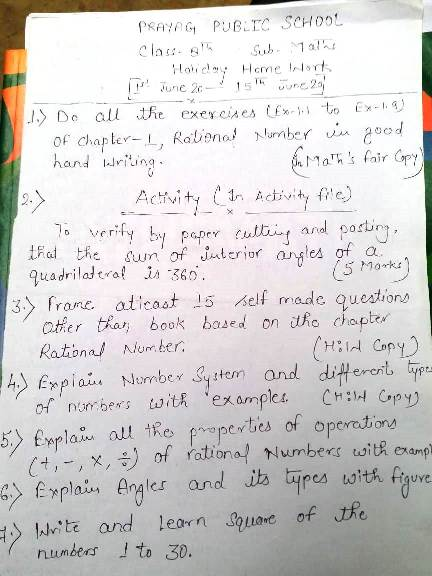 PRAYAG PUBLIC SCHOOL
Class- 8Th Sub- Maths
Holiday Home Work
[1st June 20 — 15Th June 20]
1.) Do all the exercises (Ex-1.1 to Ex-1.9)
of chapter-1, Rational Number in good
hand writing. (In Math's fair Copy)
2.) Activity (In Activity file)
To verify by paper cutting and pasting,
that the sum of interior angles of a
quadrilateral is 360°. (5 Marks)
3.) Frame atleast 15 self made questions
Other than book based on the chapter
Rational Number. (H:W Copy)
4.) Explain Number System and different types
of numbers with examples. (H:W Copy)
5.) Explain all the properties of operations
(+, -, ×, ÷) of rational Numbers with exampl
6.) Explain Angles and its types with figure
7.) Write and Learn Square of the
numbers 1 to 30.